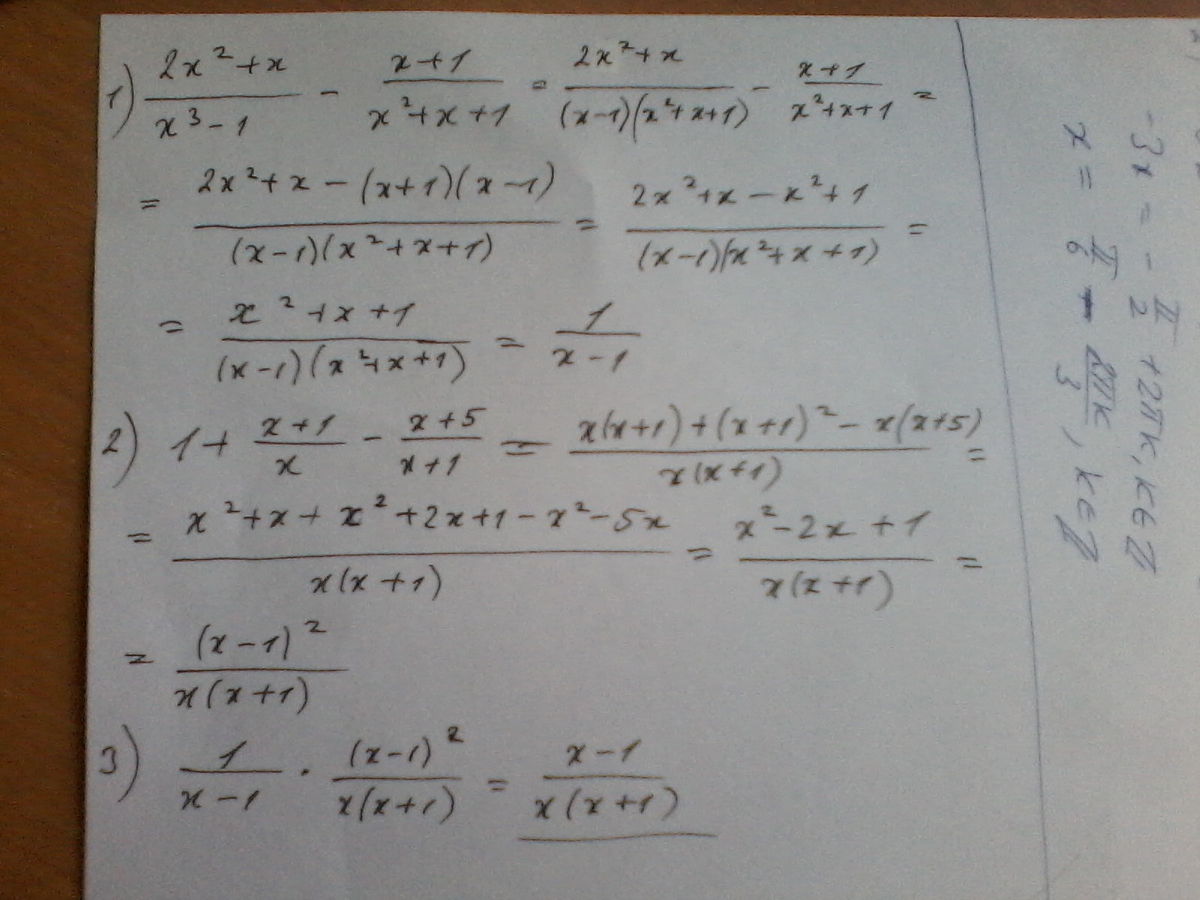 1) (2x²+x)/(x³-1) - (x+1)/(x²+x+1) = (2x²+x)/((x-1)(x²+x+1)) - (x+1)/(x²+x+1) =
= (2x²+x-(x+1)(x-1))/((x-1)(x²+x+1)) = (2x²+x-x²+1)/((x-1)(x²+x+1)) =
= (x²+x+1)/((x-1)(x²+x+1)) = 1/(x-1)
2) 1+ (x+1)/x - (x+5)/(x+1) = (x(x+1)+(x+1)²-x(x+5))/(x(x+1)) =
= (x²+x+x²+2x+1-x²-5x)/(x(x+1)) = (x²-2x+1)/(x(x+1)) =
= (x-1)²/(x(x+1))
3) 1/(x-1) · (x-1)²/(x(x+1)) = (x-1)/(x(x+1))
-3x = -π/2 + 2πk, k∈Z
x = π/6 - 2πk/3, k∈Z